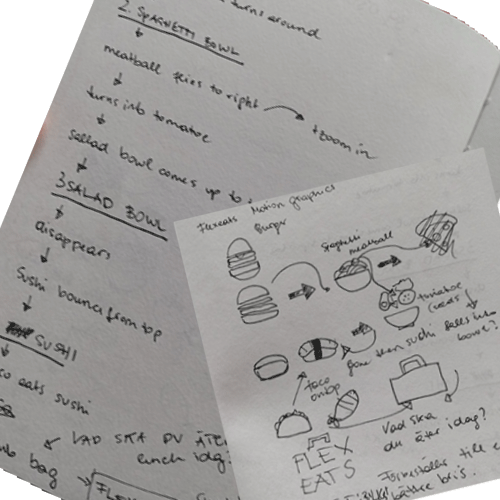 turns around
2. SPAGHETTI BOWL
meatball flies to right
+ zoom in
turns into tomatoe
Sallad bowl comes up to
3 SALAD BOWL
disappears
Sushi bounces from top
SUSHI
eats sushi
VAD SKA DU ÄTE
lunch idag?
bag
Flexeats Motion graphics
Burger
Spaghetti
meatball
tomatoe
gone then sushi falls into
bowl?
taco
FLEX
EATS
Vad ska
du äter idag?
till